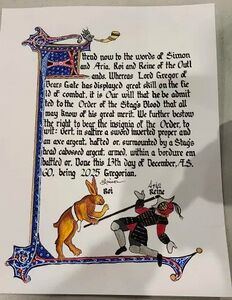 Attend now to the words of Simon
and Aria, Roi and Reine of the Outl
ands. Whereas Lord Gregor of
Bears Gate has displayed great skill on the fie
ld of combat, it is Our will that he be admit
ted to the Order of the Stag's Blood that all
may know of his great merit. We further bestow
the right to bear the insignia of the Order, to
wit: Vert, in saltire a sword inverted proper and
an axe argent, hafted or, surmounted by a Stag's
head cabossed argent, armed, within a bordure em
battled or. Done this 13th day of December, A.S.
60, being 2025 Gregorian.
Simon
Roi
Aria
Reine